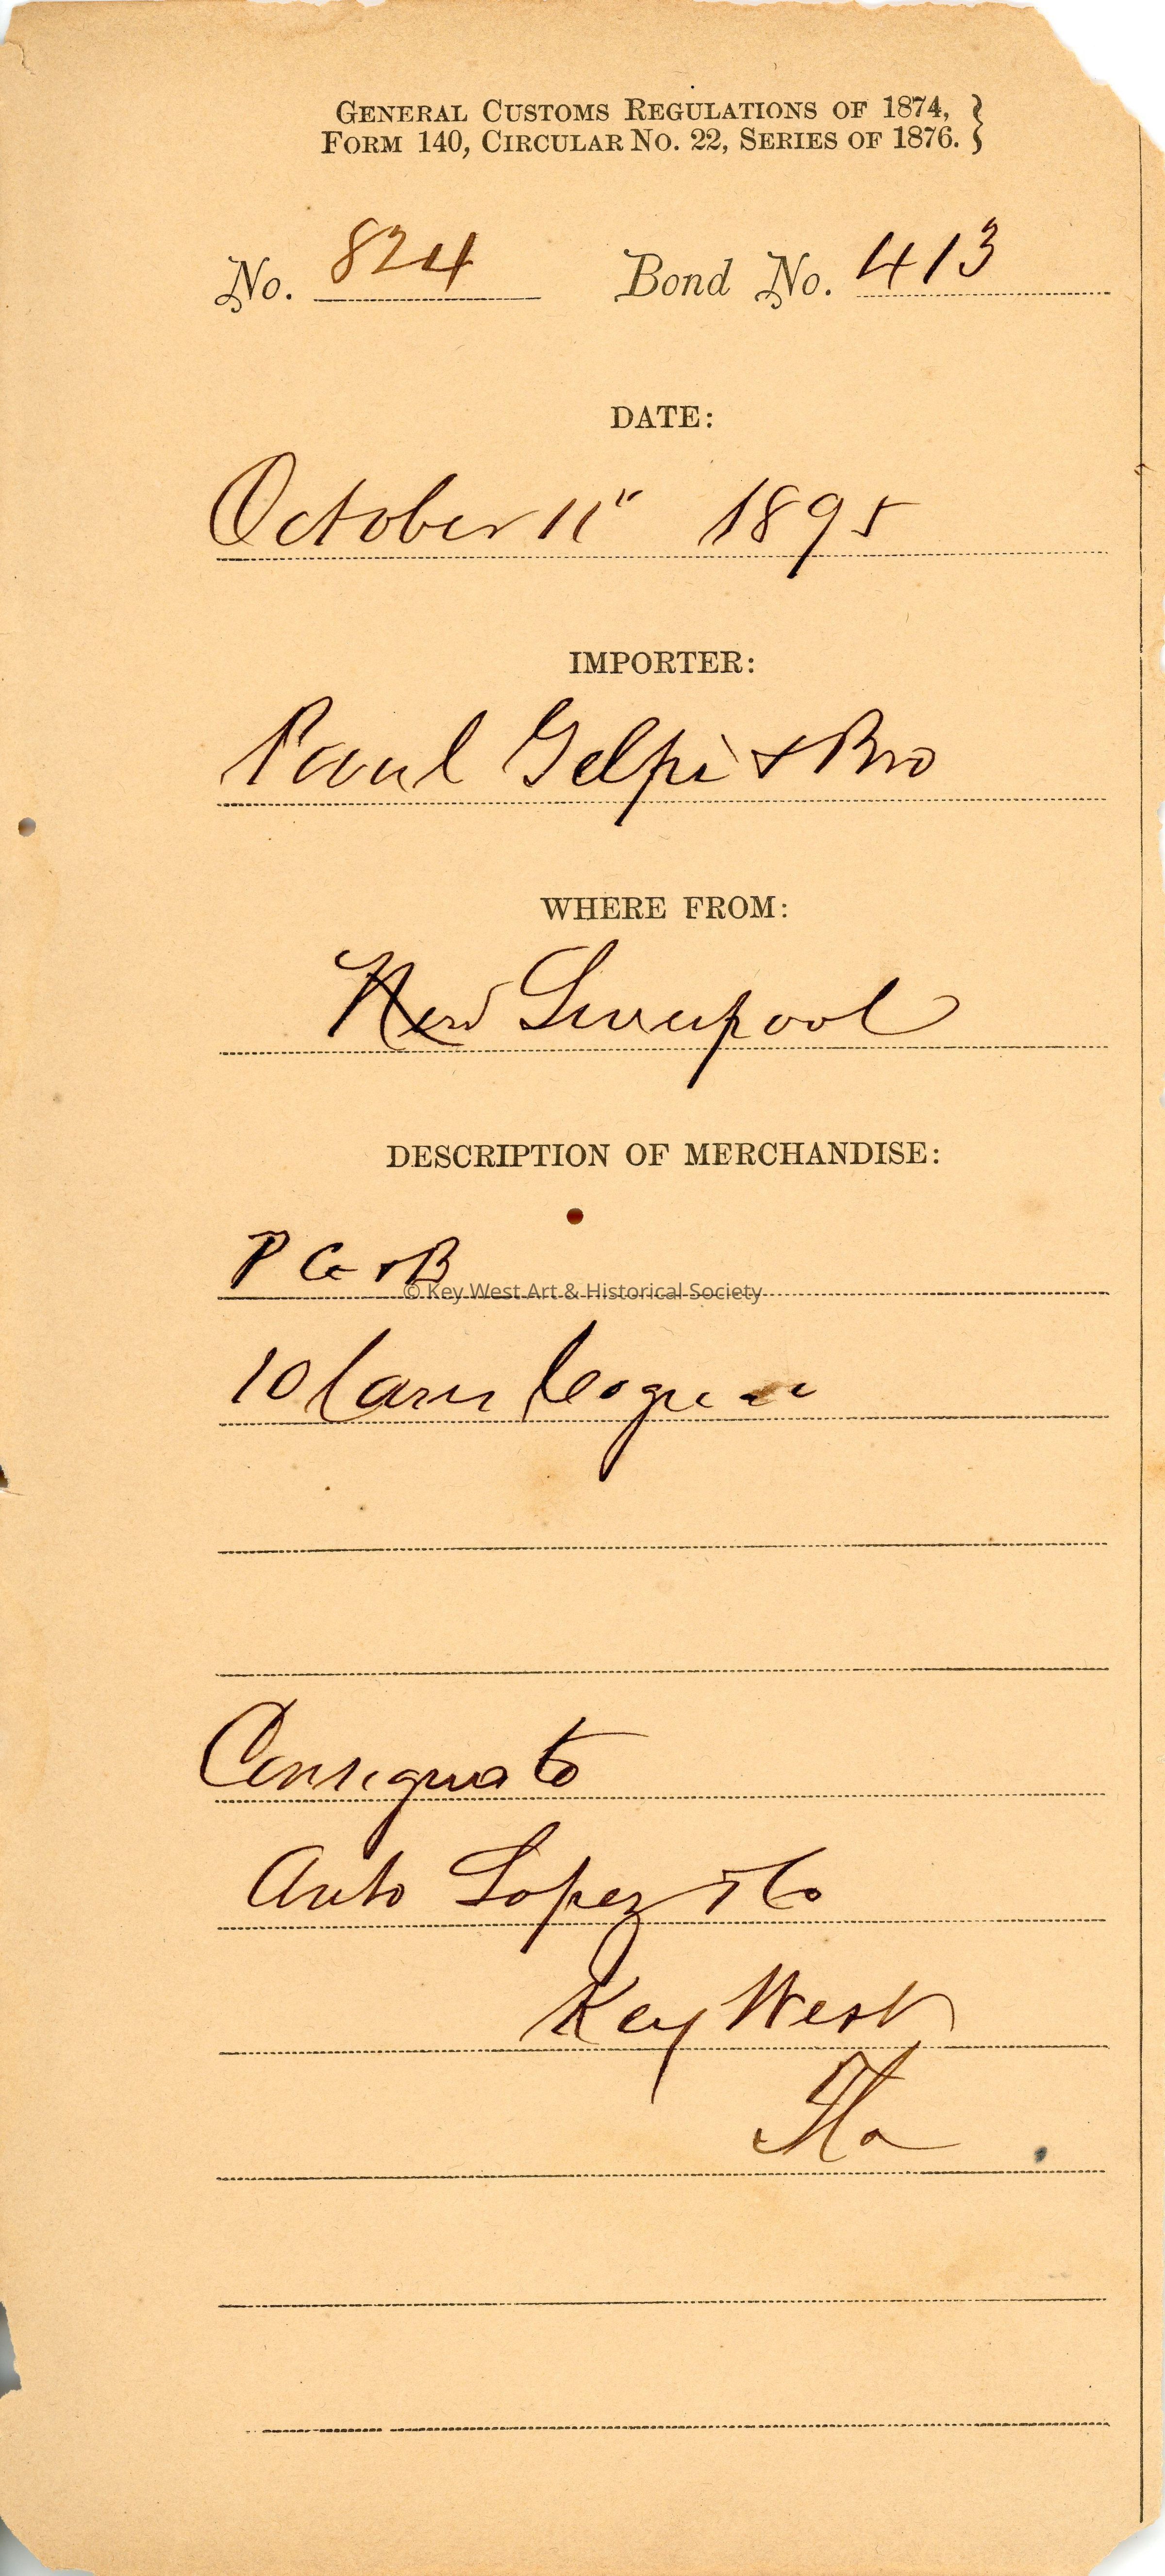 GENERAL CUSTOMS REGULATIONS OF 1874,
FORM 140, CIRCULAR NO. 22, SERIES OF 1876.
No. 824 Bond No. 413
DATE:
October 11" 1895
IMPORTER:
Paul Gelpi & Bro
WHERE FROM:
New Liverpool
DESCRIPTION OF MERCHANDISE:
P G & B
© Key West Art & Historical Society
10 Cases Cognac
Consigna to
Anto Lopez & Co
Key West
Fla